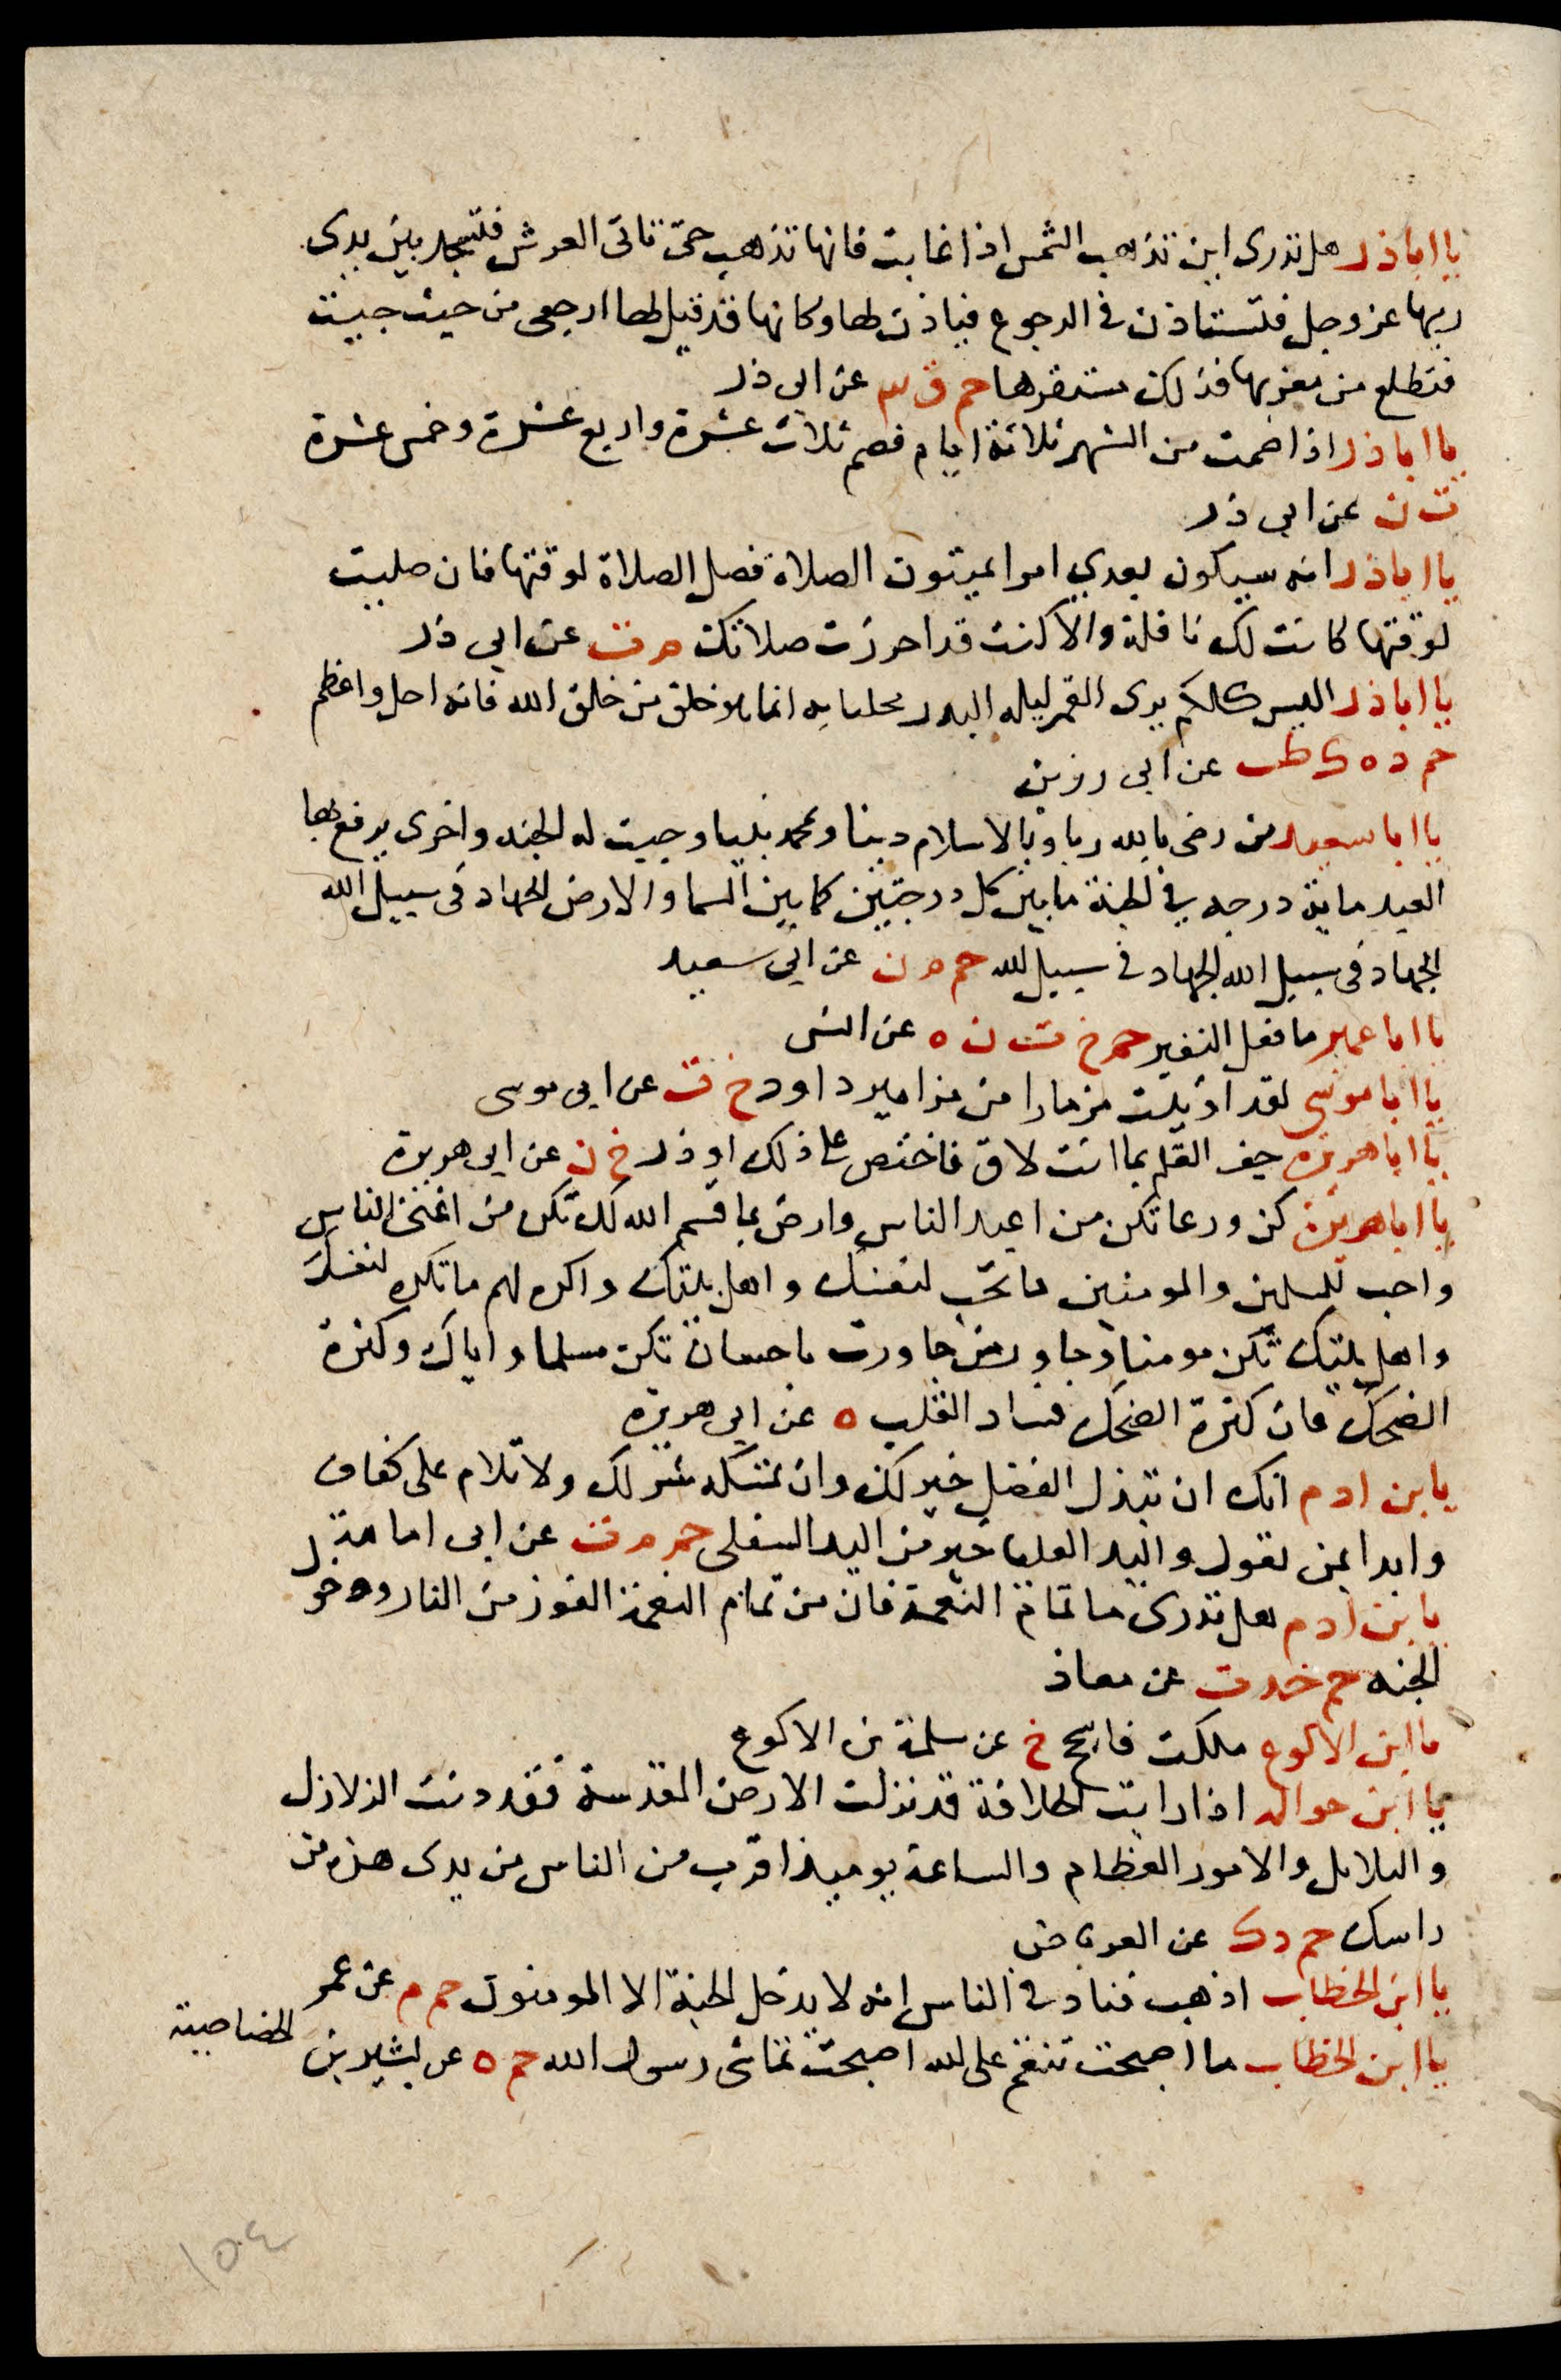 يا اباذر هل تدرى اين تذهب الشمس اذا غابت فانها تذهب حتى تاتى العرش فتسجد بين يدى
ربها عز وجل فتستاذن فى الرجوع فياذن لها وكانها قد قيل لها ارجعى من حيث جيت
فتطلع من مغربها فذلك مستقرها حم ق ٣ عن ابى ذر
يا اباذر اذا صمت من الشهر ثلاثة ايام فصم ثلاث عشرة واربع عشرة وخمس عشرة
ت ن عن ابى ذر
يا اباذر انه سيكون بعدي امرا يميتون الصلاة فصل الصلاة لوقتها فان صليت
لوقتها كانت لك نافلة والا كنت قد احرزت صلاتك م ت عن ابى ذر
يا اباذر اليس كلكم يرى القمر ليله البدر مخليا به انما هو خلق من خلق الله فالله اجل واعظم
حم د ه ك طب عن ابى رزين
يا ابا سعيد من رضى بالله ربا وبالاسلام دينا ومحمد نبيا وجبت له الجنه واخرى يرفع بها
العبد ماية درجه في الجنة ما بين كل درجتين كما بين السما والارض الجهاد فى سبيل الله
الجهاد فى سبيل الله الجهاد فى سبيل الله حم م ن عن ابى سعيد
يا ابا عمير ما فعل النغير حم خ ت ن ه عن انس
يا ابا موسى لقد اوتيت مزمارا من مزامير داود خ ت عن ابى موسى
يا ابا هريرة جف القلم بما انت لاق فاختص على ذلك او ذر خ ن عن ابى هريرة
يا ابا هريرة كن ورعا تكن من اعبد الناس وارض بما قسم الله لك تكن من اغنى الناس
واحب للمسلمين والمومنين ما تحب لنفسك واهل بيتك واكره لهم ما تكره لنفسك
واهل بيتك تكن مومنا وجاور من جاورت باحسان تكن مسلما واياك وكثرة
الضحك فان كثرة الضحك فساد القلب ه عن ابى هريرة
يا بن ادم انك ان تبذل الفضل خير لك وان تمسكه شر لك ولا تلام على كفاف
وابدا بمن تعول واليد العليا خير من اليد السفلى حم م ت عن ابى امامة
يا بن ادم هل تدرى ما تمام النعمة فان من تمام النعمة الفوز من النار ودخول
الجنه حم خد ت عن معاذ
يا ابن الاكوع ملكت فاسجح خ عن سلمة بن الاكوع
يا ابن حواله اذا رايت الخلافة قد نزلت الارض المقدسة فقد دنت الزلازل
والبلابل والامور العظام والساعة يوميذ اقرب من الناس من يدى هذه من
راسك حم د ك عن العرباض
يا ابن الخطاب اذهب فناد في الناس انه لا يدخل الجنة الا المومنون حم م عن عمر
يا ابن الخطاب ما اصبحت تنقم على الله اصبحت تماشى رسول الله حم ه عن بشير بن الخصاصية
١٥٤